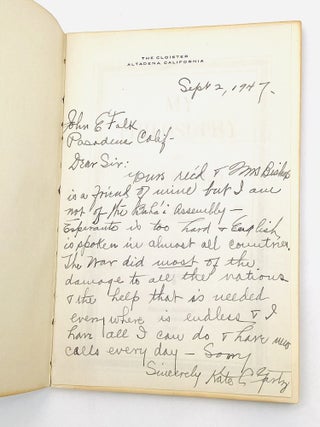 THE CLOISTER
ALTADENA CALIFORNIA
Sept 2, 1947.
John E Falk
Pasadena Calif-
Dear Sir:
yours rec'd & Mrs Bishop
is a friend of mine but I am
not of the Baha'i Assembly -
Esperanto is too hard & English
is spoken in almost all countries
The War did most of the
damage to all the nations
& the help that is needed
everywhere is endless & I
have all I can do & have new
calls every day - Sorry
Sincerely Kate C Gartz